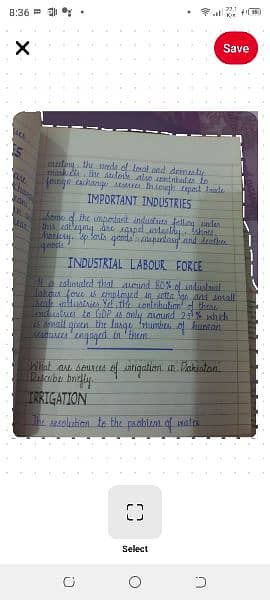 8:36
Save
meeting the needs of local and domestic
markets, the sectors also contributes to
foreign exchange reserves through export trade
IMPORTANT INDUSTRIES
Some of the important industries falling under
this category are carpet industry,
hosiery, sports goods, carpentary and leather
goods.
INDUSTRIAL LABOUR FORCE
It is estimated that around 80% of industrial
labour force is employed in cottage and small
scale industries. Yet the contribution of these
industries to GDP is only around % which
is small given the large number of human
resources engaged in them
What are sources of irrigation in Pakistan.
Describe briefly.
IRRIGATION
The resolution to the problem of water
Select